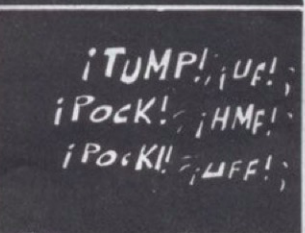 ¡TUMP! ¡UF!
¡POCK! ¡HMF!
¡POCK!! ¡UFF!